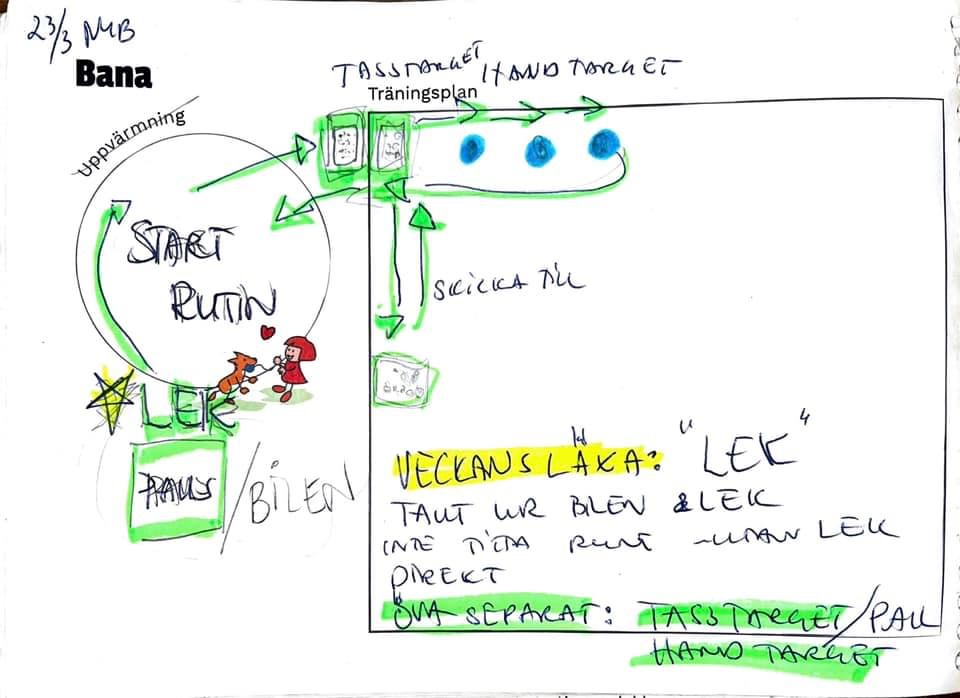 23/3 NYB
Bana
TASSTARGET / HANDTARGET
Träningsplan
Uppvärmning
START
RUTIN
SKICKA TILL
LEK
PAUS / BILEN
VECKANS LÄXA: "LEK"
TAUT UR BILEN & LEK
INTE TITTA RUNT - UTAN LEK
DIREKT
ÖVA SEPARAT: TASSTARGET / PALL
HANDTARGET